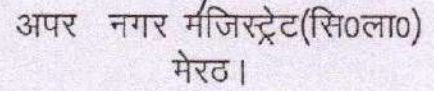 अपर नगर मजिस्ट्रेट(सि0ला0)
मेरठ।